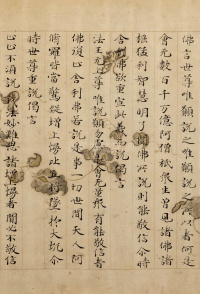 佛言世尊唯願說之唯願說之所以者何是
會无數百千万億阿僧祇衆生曾見諸佛諸
根猛利智慧明了聞佛所說則能敬信尒時
舍利弗欲重宣此義而說偈言
法王无上尊 唯說願勿慮 是會无量衆 有能敬信者
佛復止舍利弗若說是事一切世間天人阿
脩羅皆當驚疑增上慢比丘將墜於大坑尒
時世尊重說偈言
止止不須說 我法妙難思 諸增上慢者 聞必不敬信